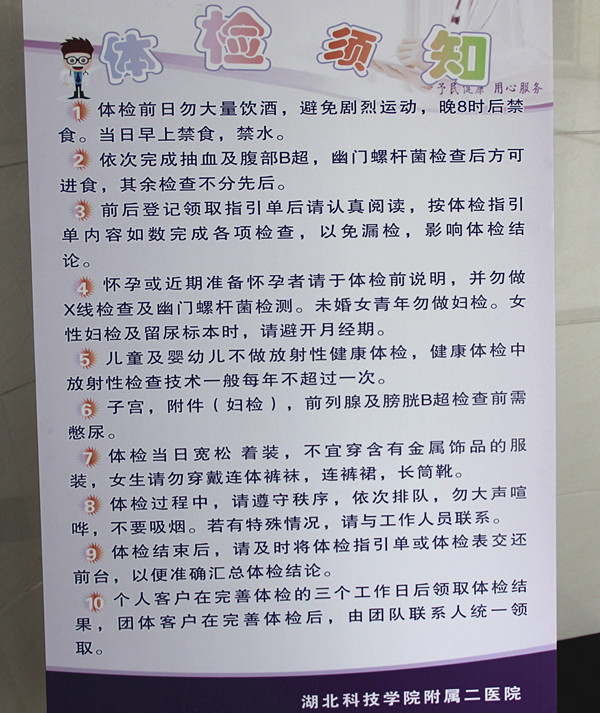 体检须知
予民健康 用心服务
1 体检前日勿大量饮酒，避免剧烈运动，晚8时后禁
食。当日早上禁食，禁水。
2 依次完成抽血及腹部B超，幽门螺杆菌检查后方可
进食，其余检查不分先后。
3 前后登记领取指引单后请认真阅读，按体检指引
单内容如数完成各项检查，以免漏检，影响体检结
论。
4 怀孕或近期准备怀孕者请于体检前说明，并勿做
X线检查及幽门螺杆菌检测。未婚女青年勿做妇检。女
性妇检及留尿标本时，请避开月经期。
5 儿童及婴幼儿不做放射性健康体检，健康体检中
放射性检查技术一般每年不超过一次。
6 子宫，附件（妇检），前列腺及膀胱B超检查前需
憋尿。
7 体检当日宽松 着装，不宜穿含有金属饰品的服
装，女生请勿穿戴连体裤袜，连裤裙，长筒靴。
8 体检过程中，请遵守秩序，依次排队，勿大声喧
哗，不要吸烟。若有特殊情况，请与工作人员联系。
9 体检结束后，请及时将体检指引单或体检表交还
前台，以便准确汇总体检结论。
10 个人客户在完善体检的三个工作日后领取体检结
果，团体客户在完善体检后，由团队联系人统一领
取。
湖北科技学院附属二医院